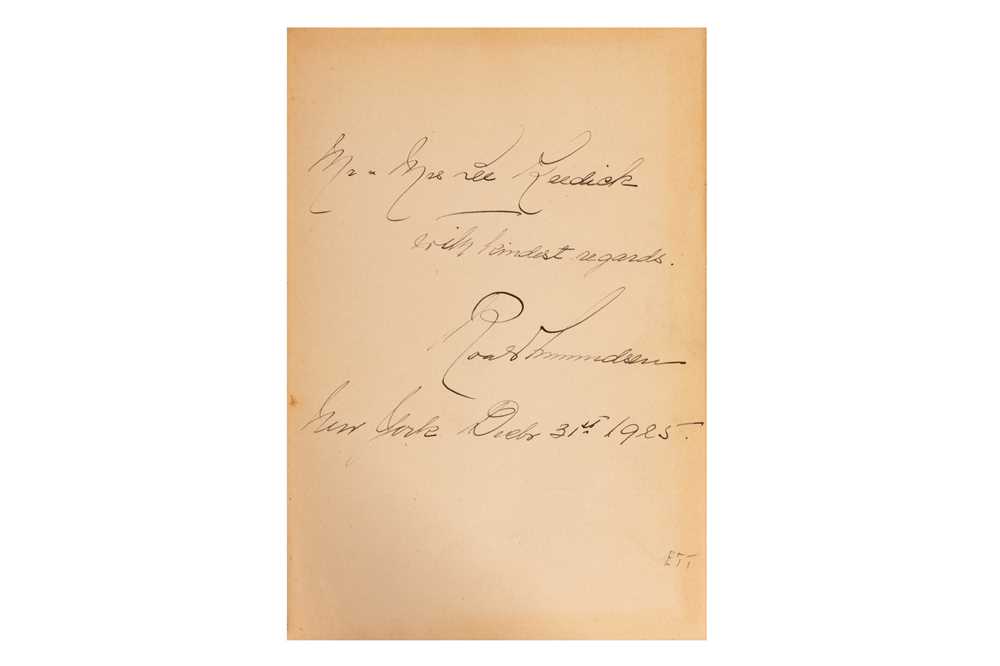 Mr & Mrs Lee Keedick
with kindest regards.
Roald Amundsen
New York Decbr 31st 1925.
ETT